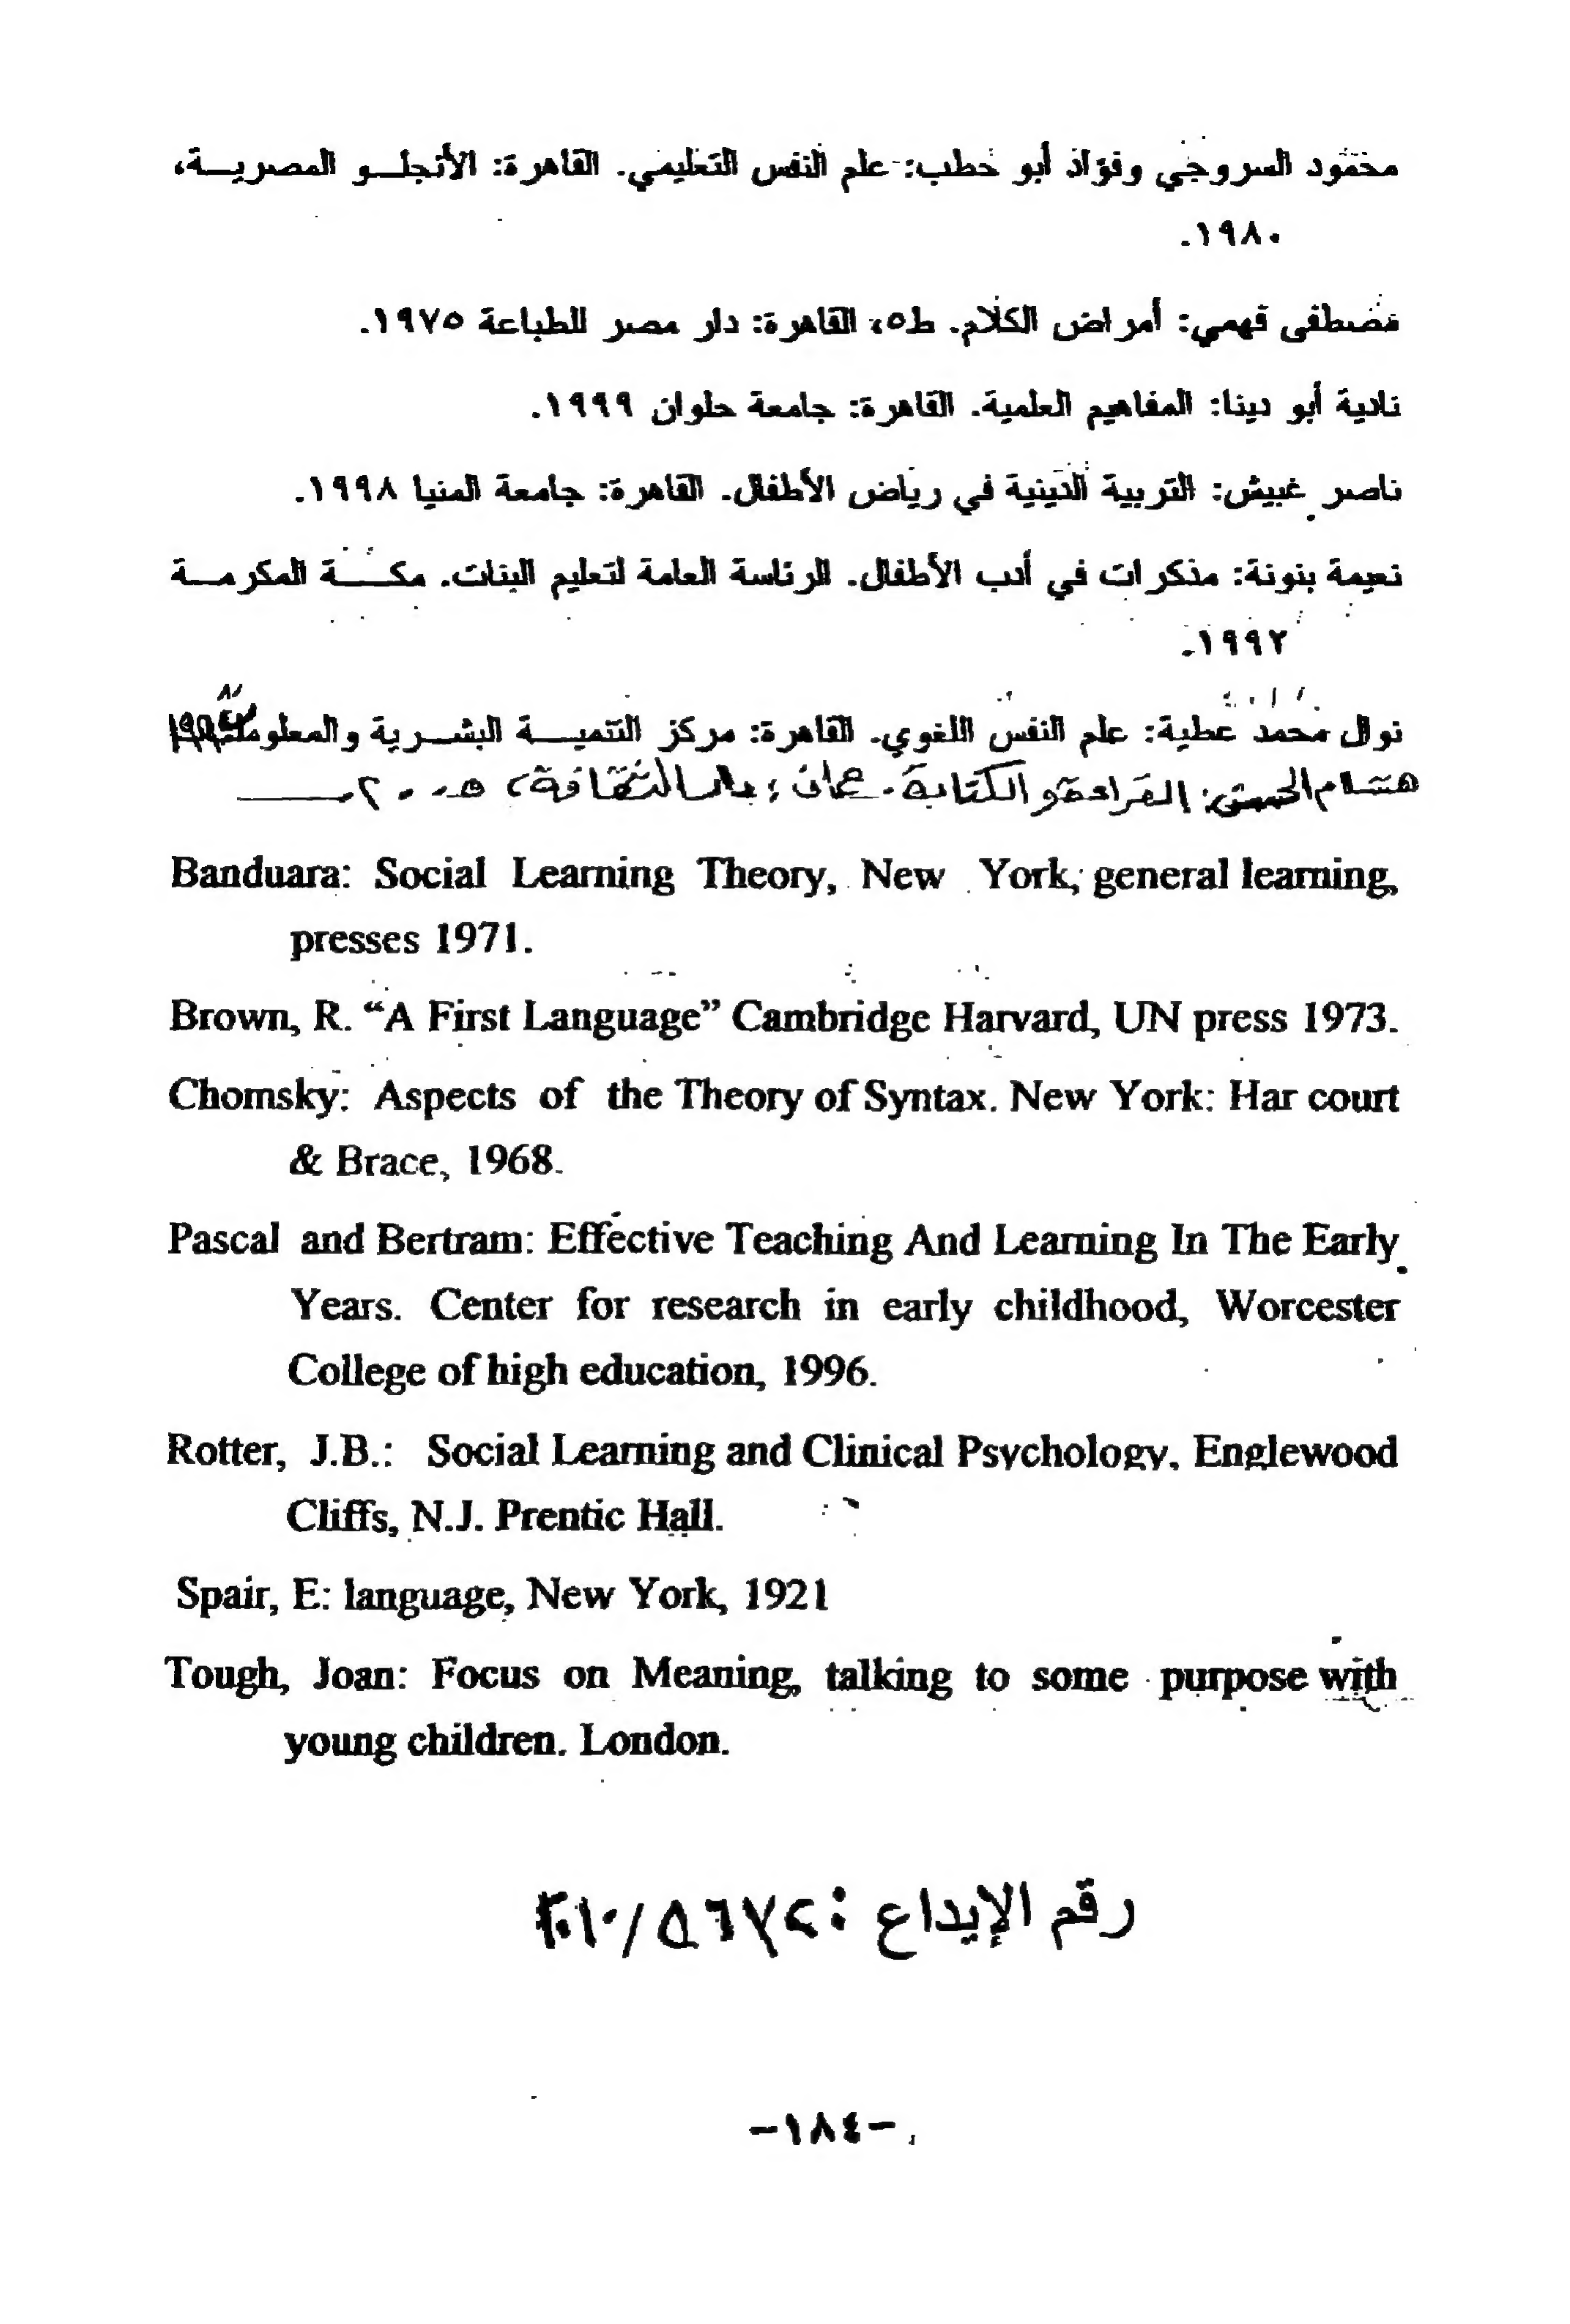 محمود السروجي وفؤاد أبو حطب: علم النفس التعليمي. القاهرة: الأنجلو المصرية،
١٩٨٠.
مصطفى فهمي: أمراض الكلام. ط٥، القاهرة: دار مصر للطباعة ١٩٧٥.
نادية أبو دينا: المفاهيم العلمية. القاهرة: جامعة حلوان ١٩٩٩.
ناصر غبيش: التربية الدينية في رياض الأطفال. القاهرة: جامعة المنيا ١٩٩٨.
نعيمة بنونة: مذكرات في أدب الأطفال. الرئاسة العامة لتعليم البنات. مكة المكرمة
١٩٩٢.
نوال محمد عطية: علم النفس اللغوي. القاهرة: مركز التنمية البشرية والمعلومات
هشام الحسن: القراءة و الكتابة. عمان: دار الثقافة، ٢٠٠٥.
Banduara: Social Learning Theory, New York, general learning,
presses 1971.
Brown, R. “A First Language” Cambridge Harvard, UN press 1973.
Chomsky: Aspects of the Theory of Syntax. New York: Har court
& Brace, 1968.
Pascal and Bertram: Effective Teaching And Learning In The Early
Years. Center for research in early childhood, Worcester
College of high education, 1996.
Rotter, J.B.: Social Learning and Clinical Psychology. Englewood
Cliffs, N.J. Prentic Hall.
Spair, E: language, New York, 1921
Tough, Joan: Focus on Meaning, talking to some purpose with
young children. London.
رقم الإيداع : ٢٠١٠/٥٦٧٢
-١٨٤-